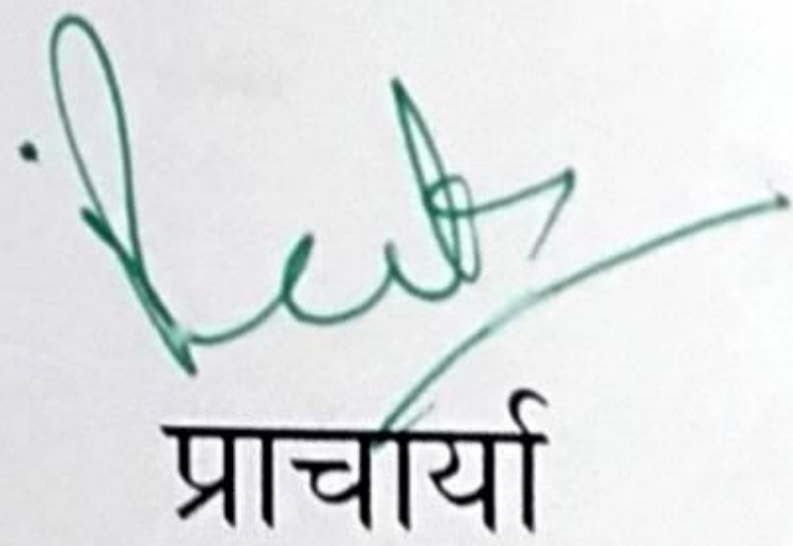 प्राचार्या